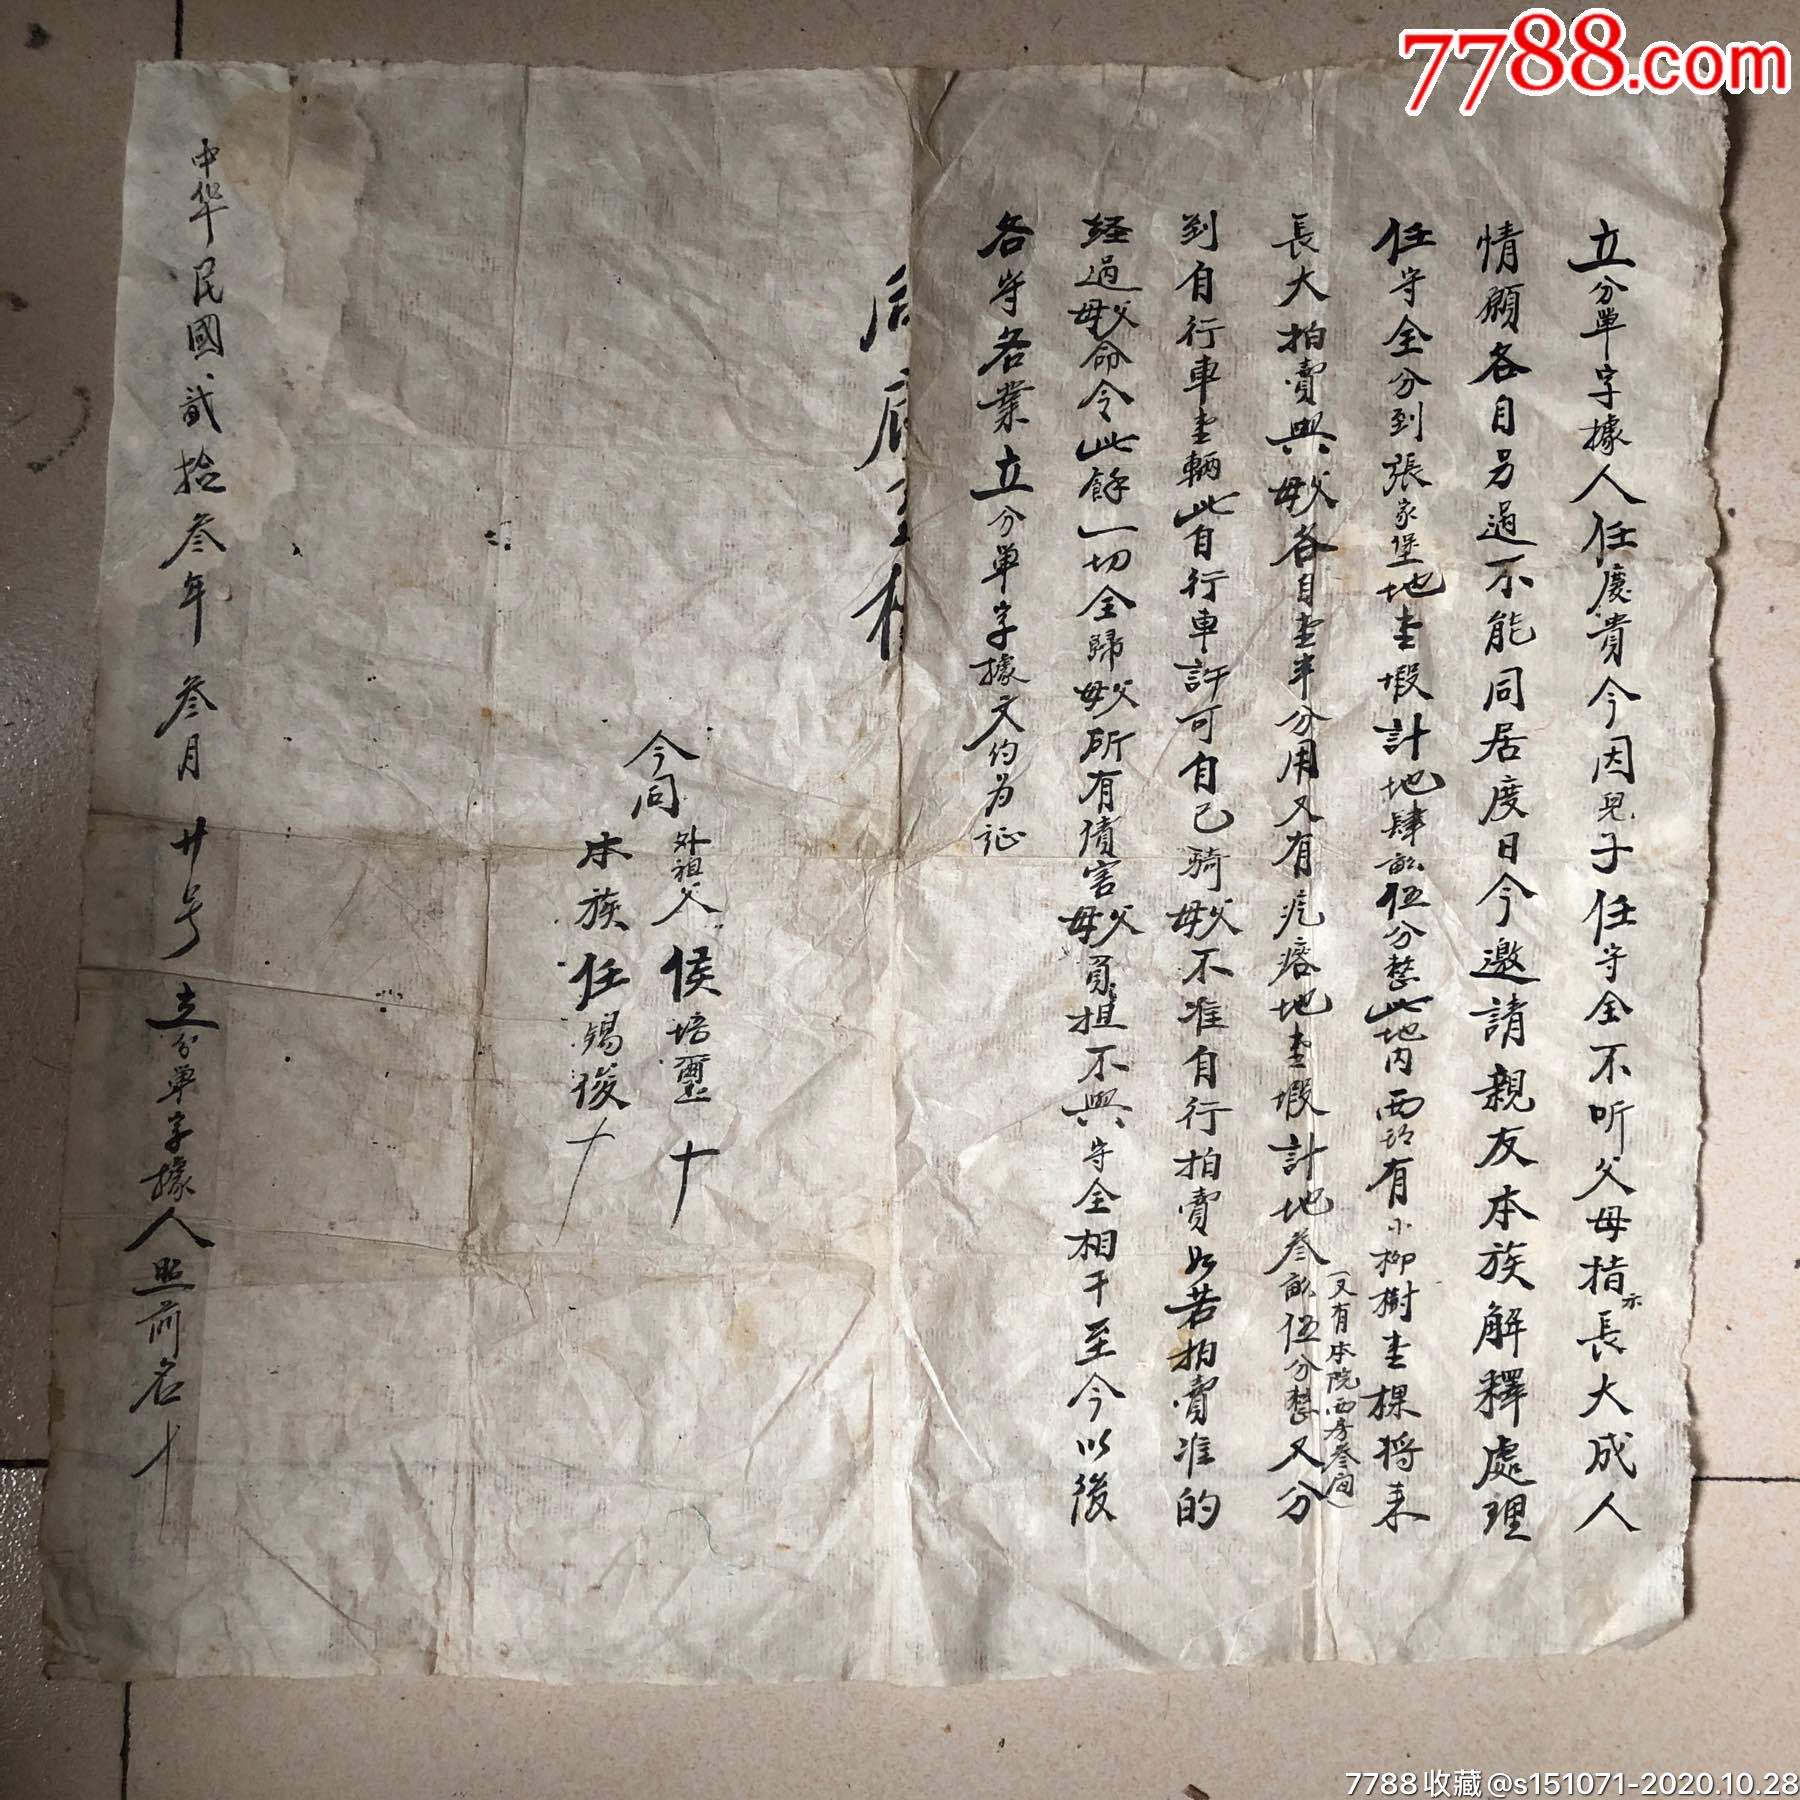 7788.com
立分單字據人任慶貴今因兒子任守全不听父母指示長大成人
情願各自另過不能同居度日今邀請親友本族解釋處理
任守全分到張家堡地壹塅計地肆畝伍分整此地内西邊有小柳樹壹棵將来
(又有本院西房叁间)
長大拍賣與父母各自壹半分用又有疙瘩地壹塅計地叁畝伍分整又分
到自行車壹輛此自行車許可自己骑父母不准自行拍賣如若拍賣准的
経過父母命令此餘一切全歸父母所有債害父母負担不與守全相干至今以後
各守各業立分單字據文约为证
今同
外祖父 侯培壐 十
本族 任錫俊 十
中华民國貳拾叁年叁月廿号立分單字據人照前名十
7788收藏@s151071-2020.10.28